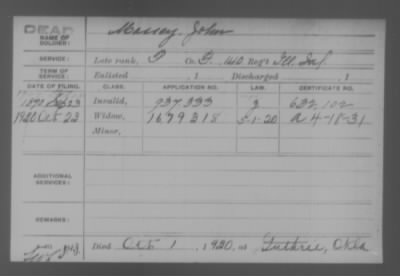 DEAD
NAME OF SOLDIER: Massey, John
SERVICE: Late rank, P Co. G, 40 Reg't Ill. Inf.
TERM OF SERVICE: Enlisted , 1 Discharged , 1
DATE OF FILING. CLASS. APPLICATION NO. LAW. CERTIFICATE NO.
1890 Invalid, 937333 3 632,102
1920 Oct 23 Widow, 1679318 5-1-20 A 4-18-31
Minor,
ADDITIONAL SERVICES:
REMARKS:
Died Oct 1, 1920, at Guthrie, Okla